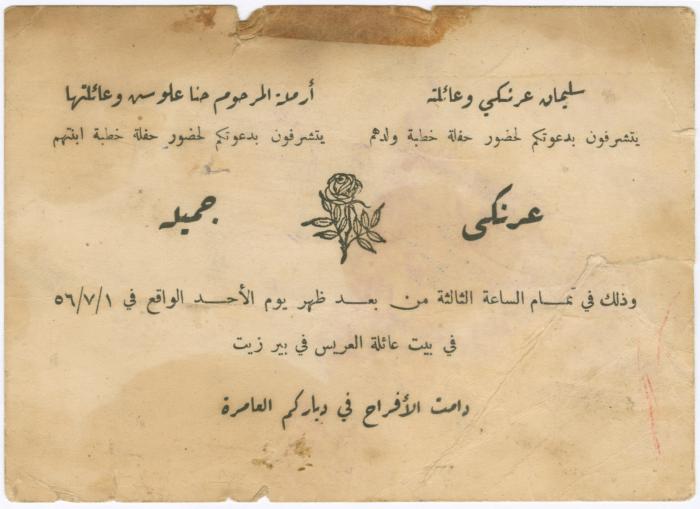 سليمان عرنكي وعائلته
يتشرفون بدعوتكم لحضور حفلة خطبة ولدهم
عرنكي
أرملة المرحوم حنا علوس وعائلتها
يتشرفون بدعوتكم لحضور حفلة خطبة ابنتهم
جميله
وذلك في تمام الساعة الثالثة من بعد ظهر يوم الأحد الواقع في ٥٦/٧/١
في بيت عائلة العريس في بير زيت
دامت الأفراح في دياركم العامرة